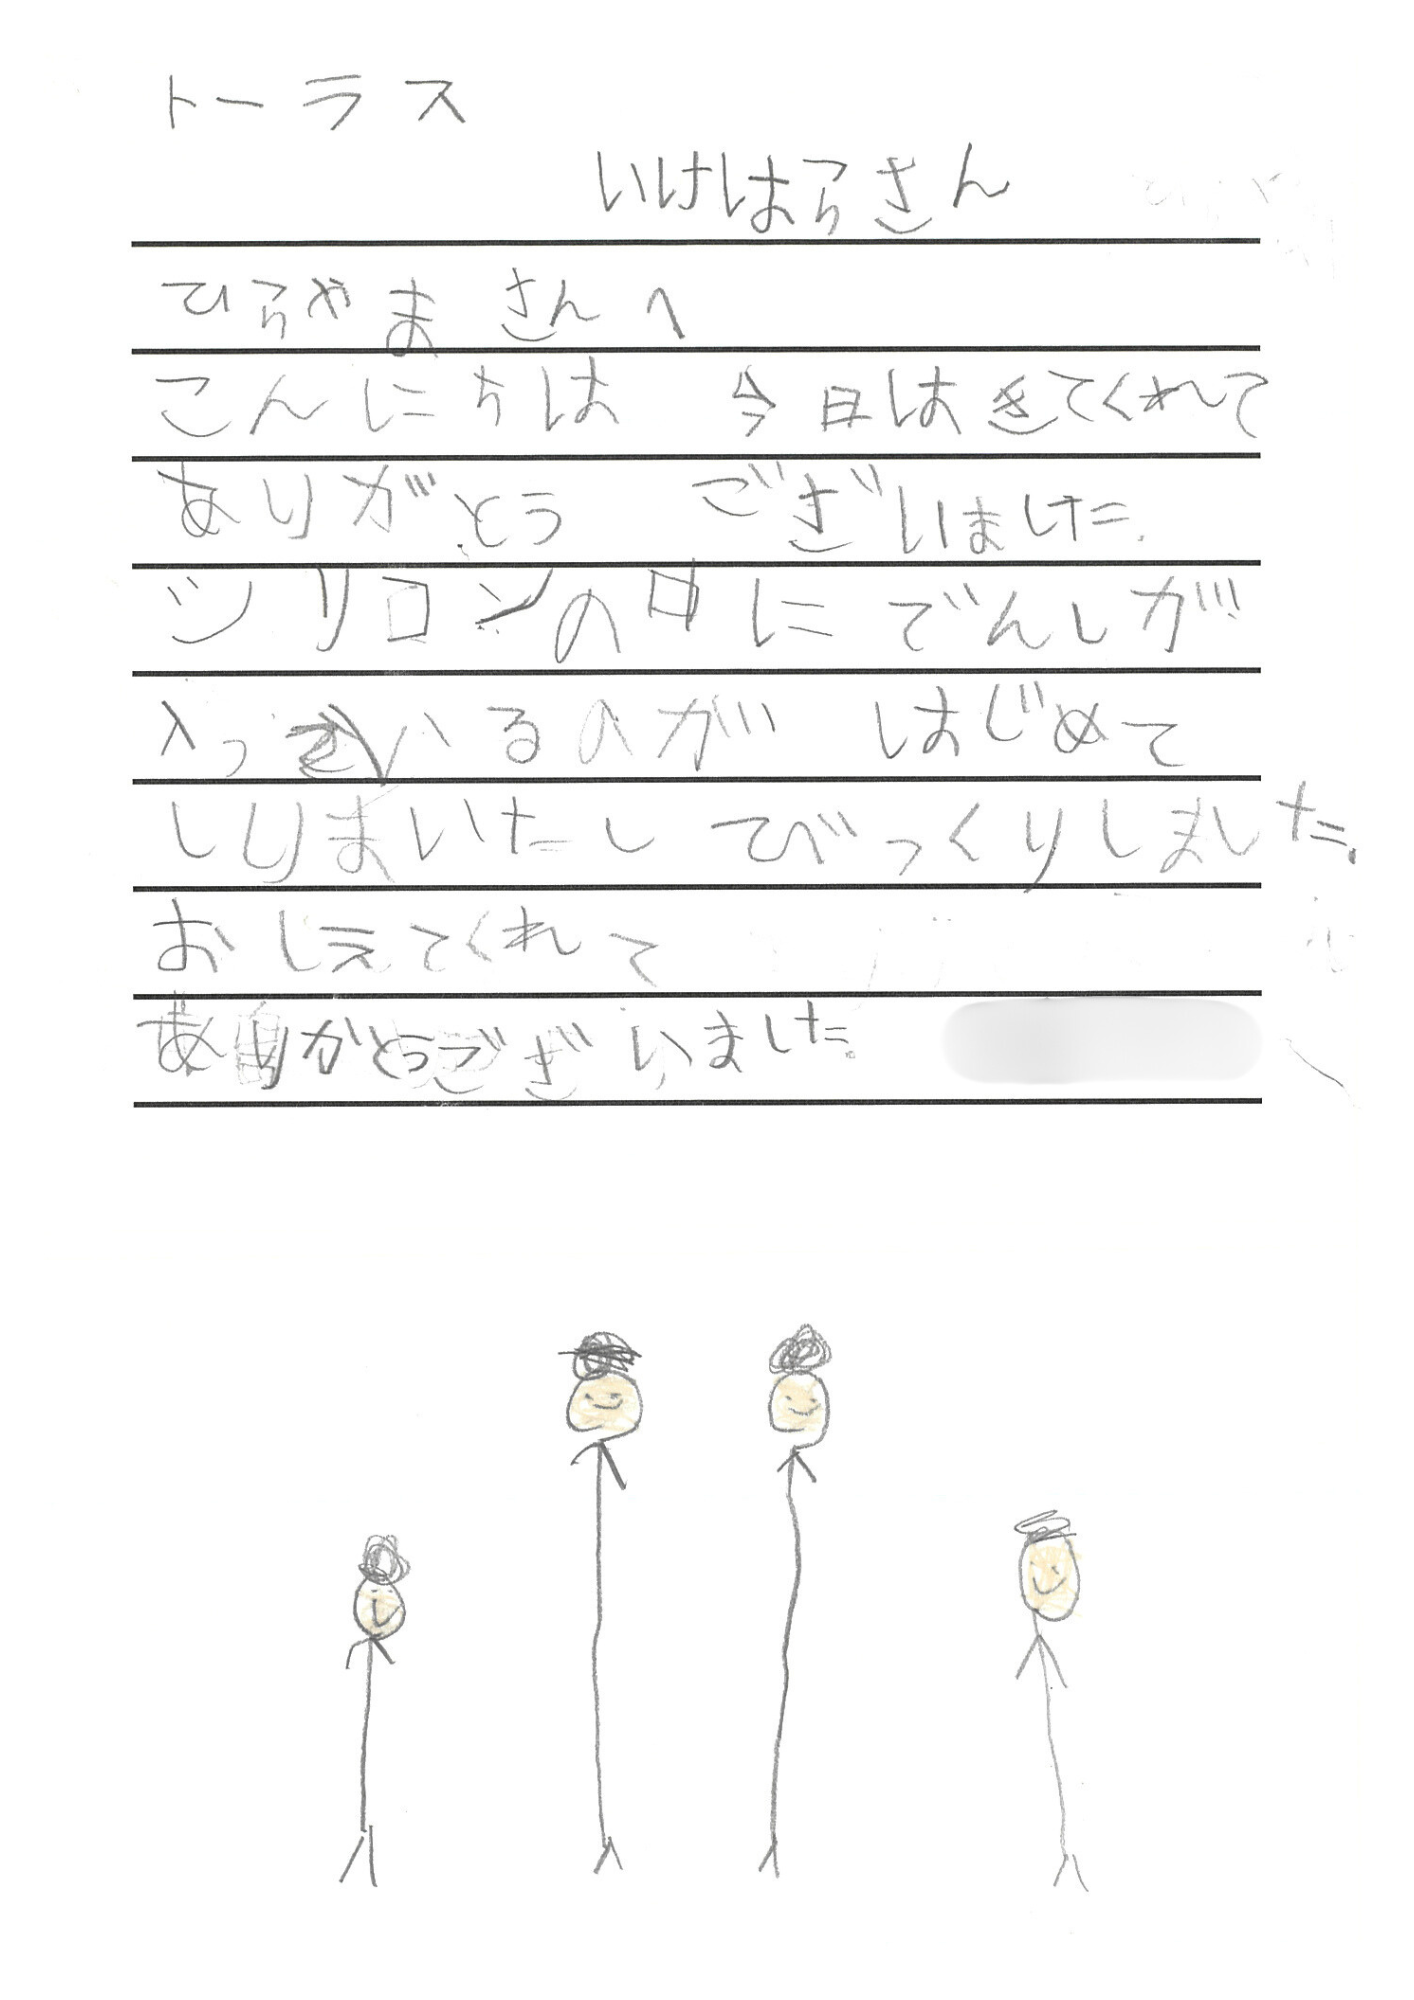 トーラス
いけはらさん
ひらやま さんへ
こんにちは 今日はきてくれて
ありがとう ございました.
シリコンの中に でんしが
入っているのが はじめて
しりまいたし てびっくりしました.
おしえてくれて
ありがとうございました。